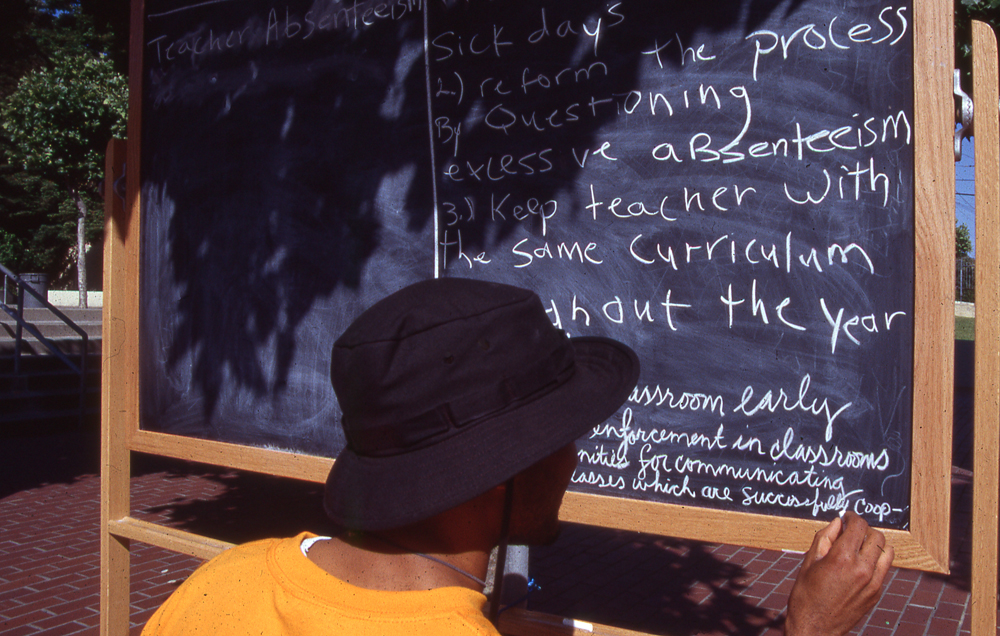 Teacher Absenteeism
Sick days
2) reform the process
By Questioning
excessive aBsenteeism
3.) Keep teacher with
the same curriculum
ghout the year
assroom early
enforcement in classrooms
nities for communicating
asses which are successfully coop-